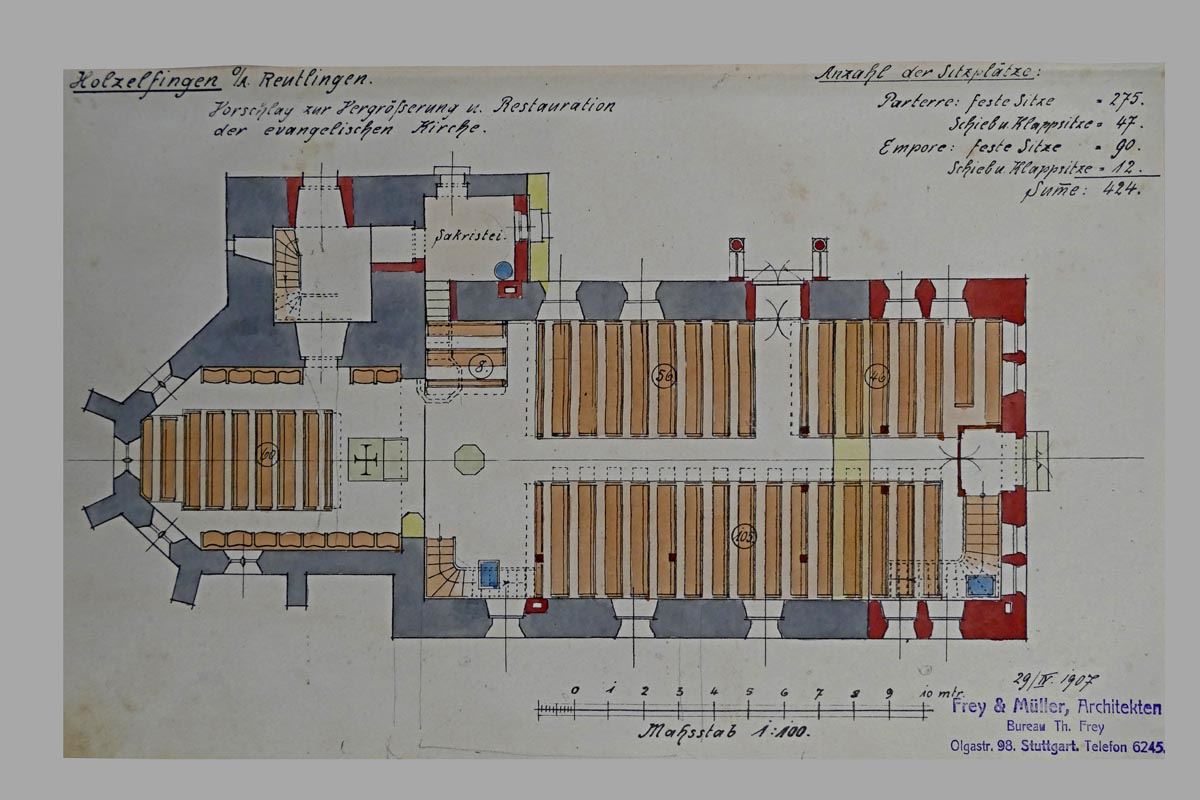 Holzelfingen O/A. Reutlingen.
Vorschlag zur Vergrößerung u. Restauration
der evangelischen Kirche.
Anzahl der Sitzplätze:
Parterre: feste Sitze = 275.
Schieb u. Klappsitze = 47.
Empore: feste Sitze = 90.
Schieb u. Klappsitze = 12.
Sum̅e: 424.
Sakristei.
8.
56
46
60
105
0 1 2 3 4 5 6 7 8 9 10 mtr.
Maßstab 1:100.
29/IV. 1907
Frey & Müller, Architekten
Bureau Th. Frey
Olgastr. 98. Stuttgart. Telefon 6245.